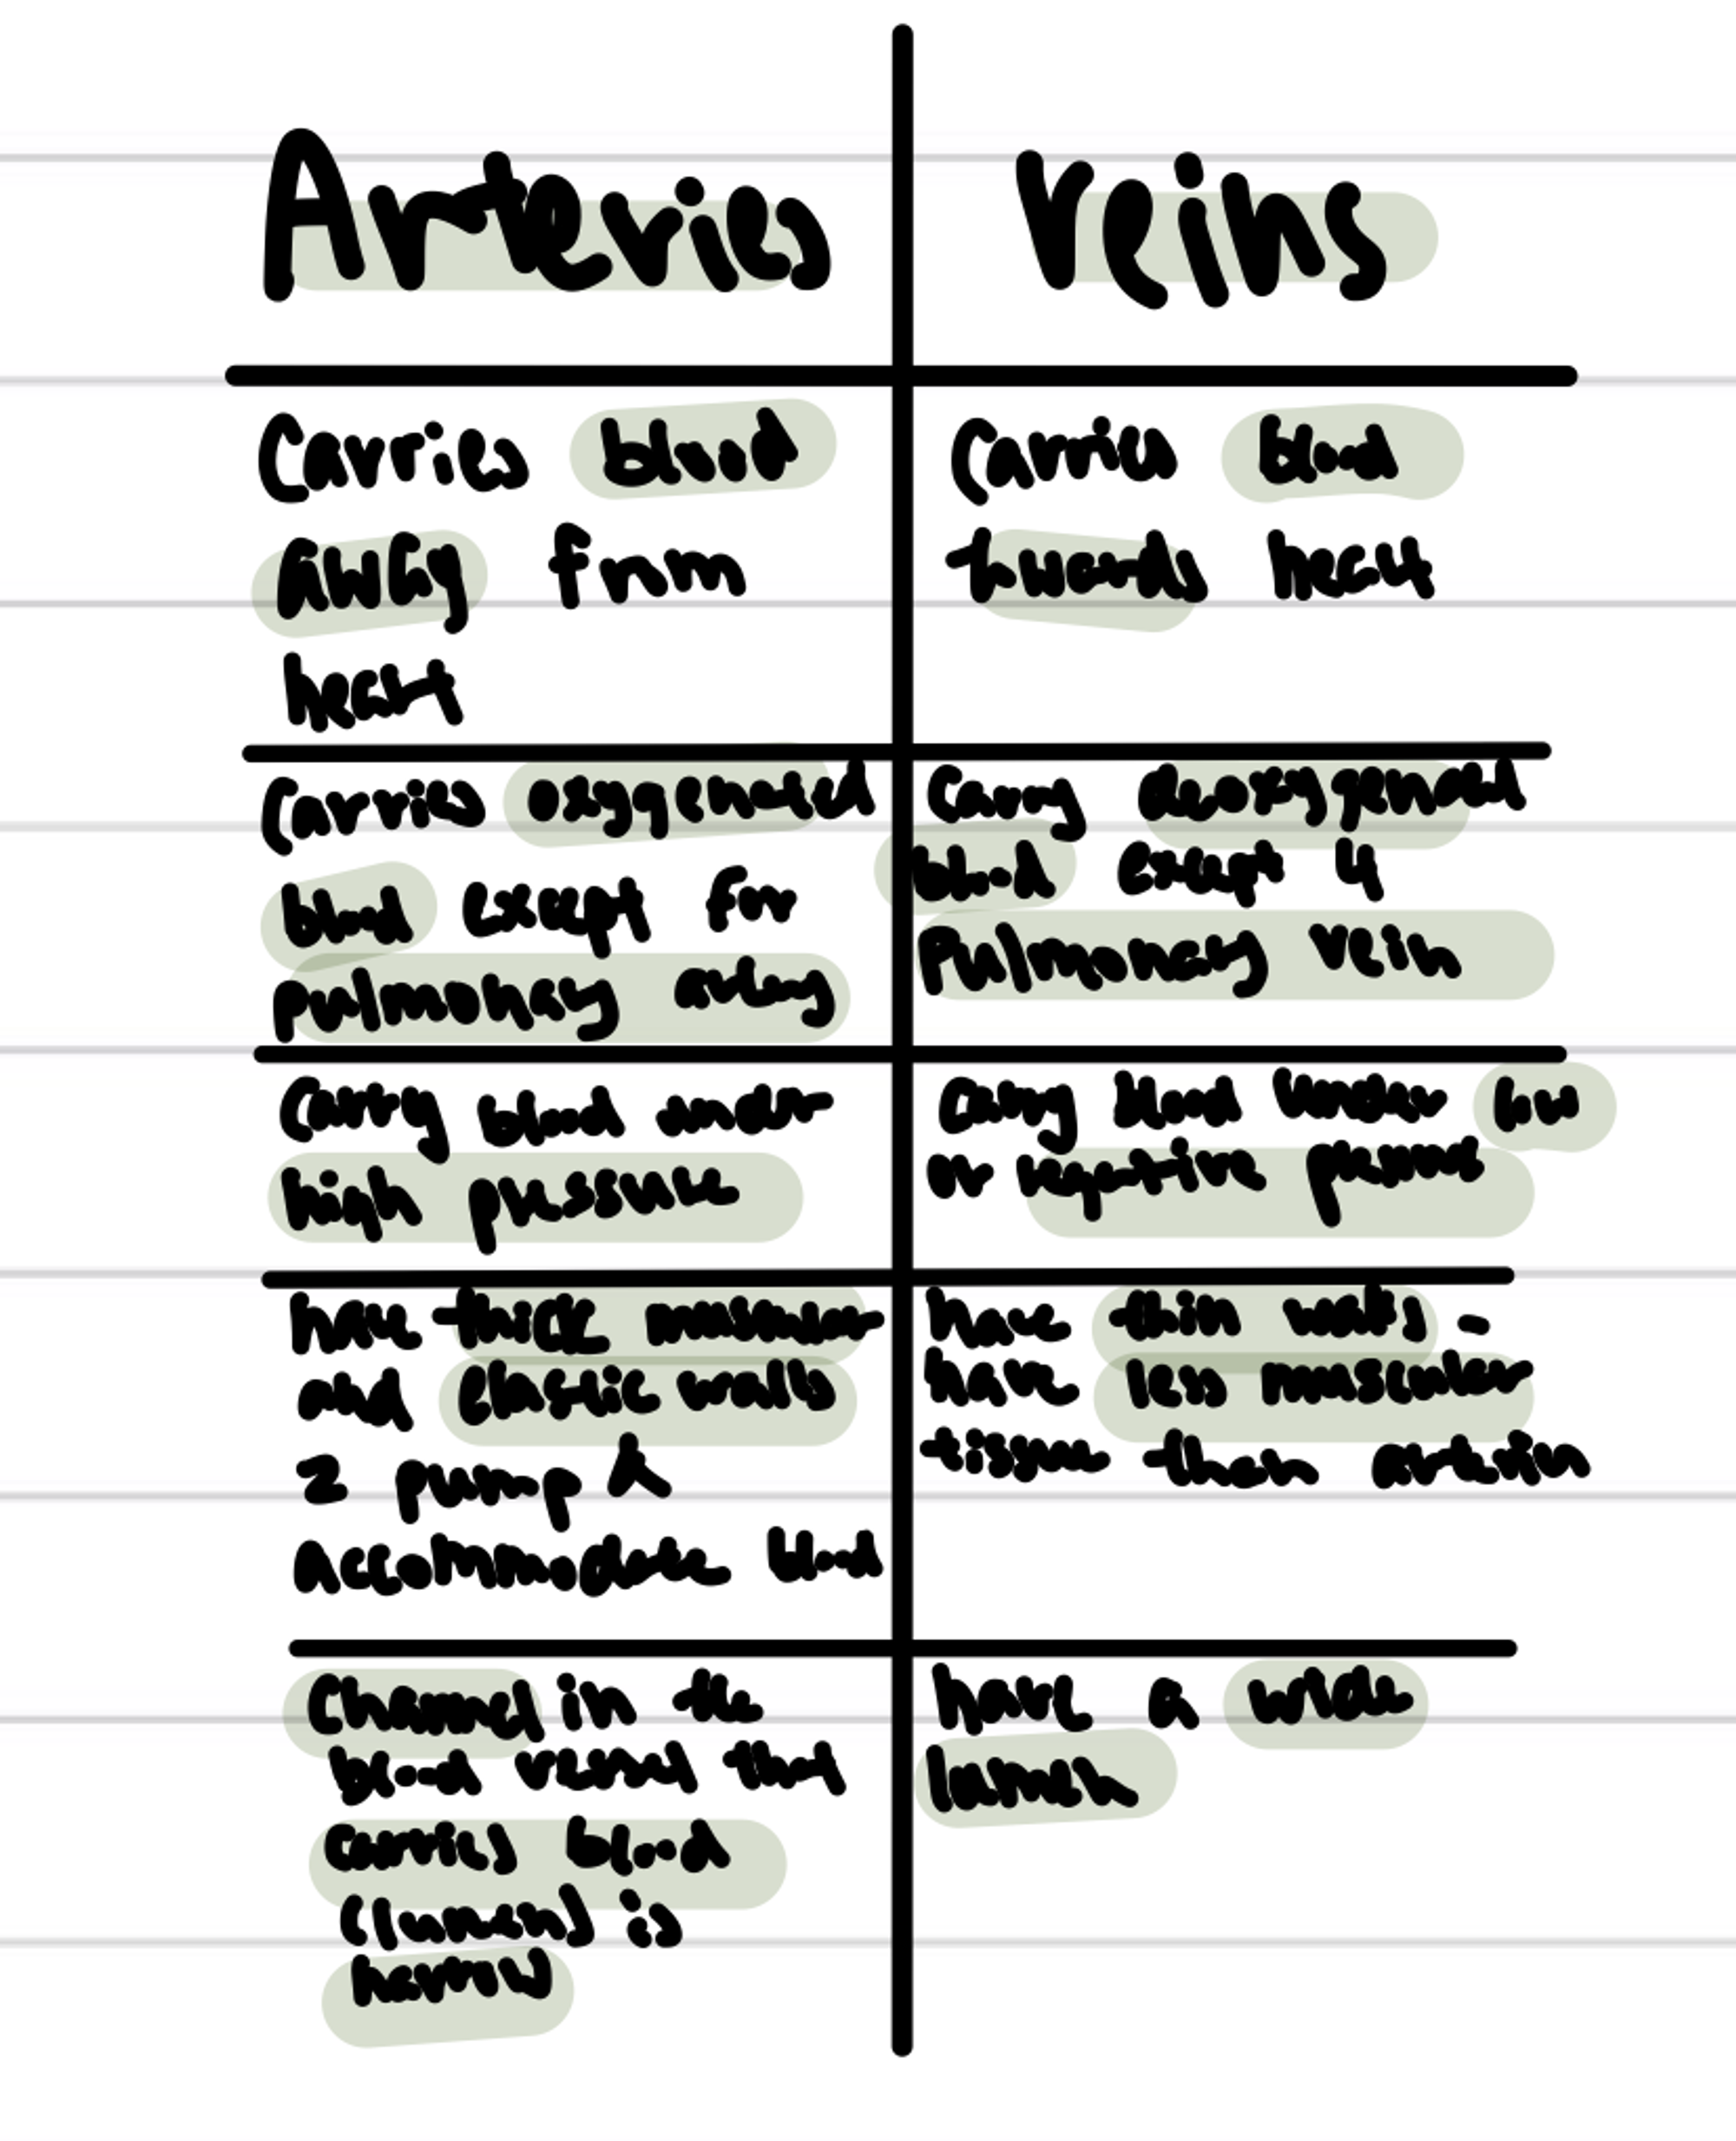 Arteries
Veins
Carries blood
away from
heart
Carries blood
towards heart
Carries oxygenated
blood except for
pulmonary artery
Carry deoxygenated
blood except 4
Pulmonary vein
Carry blood under
high pressure
Carry blood under low
or negative pressure
have thick muscular
and elastic walls
2 pump &
accommodate blood
have thin walls -
have less muscular
tissue than arteries
Channel in the
blood vessel that
carries blood
(lumen) is
narrow
have a wide
lumen